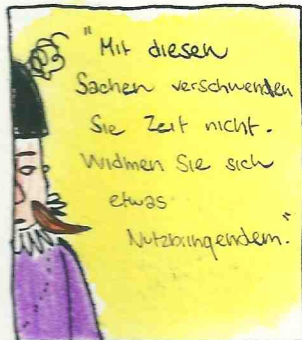 "Mit diesen
Sachen verschwenden
Sie Zeit nicht.
Widmen Sie sich
etwas
Nutzbringendem."